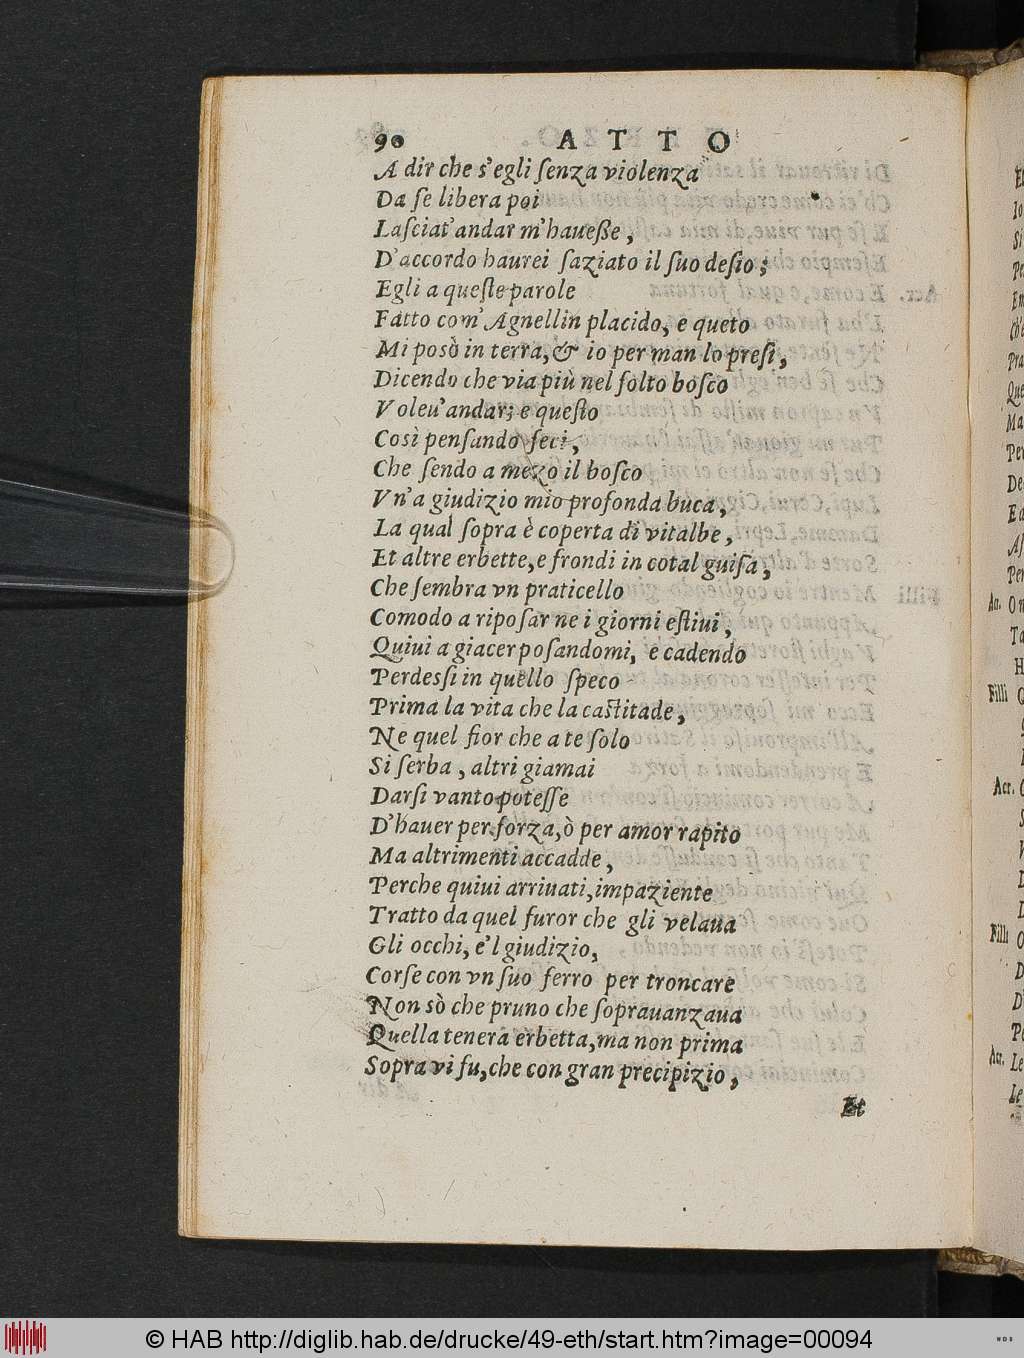 90 ATTO
A dir che s'egli ſenza violenza
Da ſe libera poi
Laſciat'andar m'haueße,
D'accordo haurei ſaziato il ſuo deſio;
Egli a queſte parole
Fatto com' Agnellin placido, e queto
Mi posò in terra, & io per man lo preſi,
Dicendo che via più nel folto boſco
Voleu'andar; e queſto
Così penſando feci,
Che ſendo a mezo il boſco
Vn'a giudizio mio profonda buca,
La qual ſopra è coperta di vitalbe,
Et altre erbette, e frondi in cotal guiſa,
Che ſembra vn praticello
Comodo a ripoſar ne i giorni eſtiui,
Quiui a giacer poſandomi, e cadendo
Perdeſsi in quello ſpeco
Prima la vita che la caſtitade,
Ne quel fior che a te ſolo
Si ſerba, altri giamai
Darſi vanto poteſſe
D'hauer per forza, ò per amor rapito
Ma altrimenti accadde,
Perche quiui arriuati, impaziente
Tratto da quel furor che gli velaua
Gli occhi, e'l giudizio,
Corſe con vn ſuo ferro per troncare
Non sò che pruno che ſoprauanzaua
Quella tenera erbetta, ma non prima
Sopra vi fu, che con gran precipizio,
Et
Filli
Acr.
Filli
Acr.
© HAB http://diglib.hab.de/drucke/49-eth/start.htm?image=00094